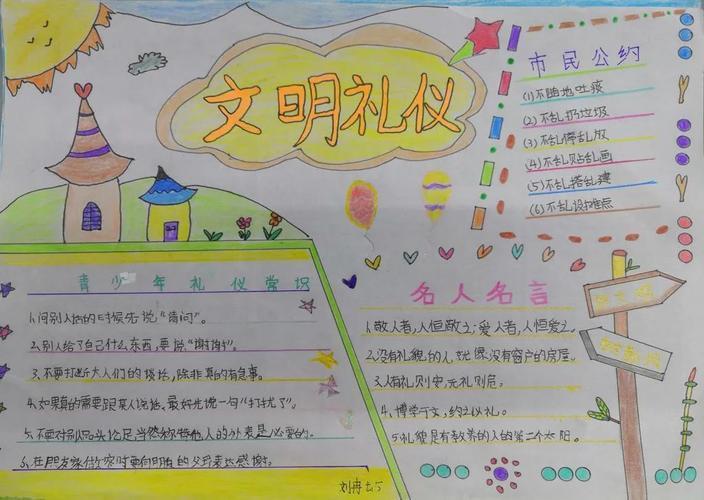 文明礼仪
市民公约
(1)不随地吐痰
(2)不乱扔垃圾
(3)不乱停乱放
(4)不乱贴乱画
(5)不乱搭乱建
(6)不乱设摊点
青少年礼仪常识
1.问别人话的时候先说"请问"。
2.别人给了自己什么东西,要说"谢谢"。
3.不要打断大人们的谈话,除非真的有急事。
4.如果真的需要跟某人说话,最好先说一句"打扰了"。
5.不要对别人评头论足,当然称赞他人的外表是必要的。
6.在朋友家做客时要向朋友的父母表达感谢。
刘冉
名人名言
1.敬人者,人恒敬之;爱人者,人恒爱之。
2.没有礼貌的人,就像没有窗户的房屋。
3.人有礼则安,无礼则危。
4.博学于文,约之以礼。
5.礼貌是有教养的人的第二个太阳。